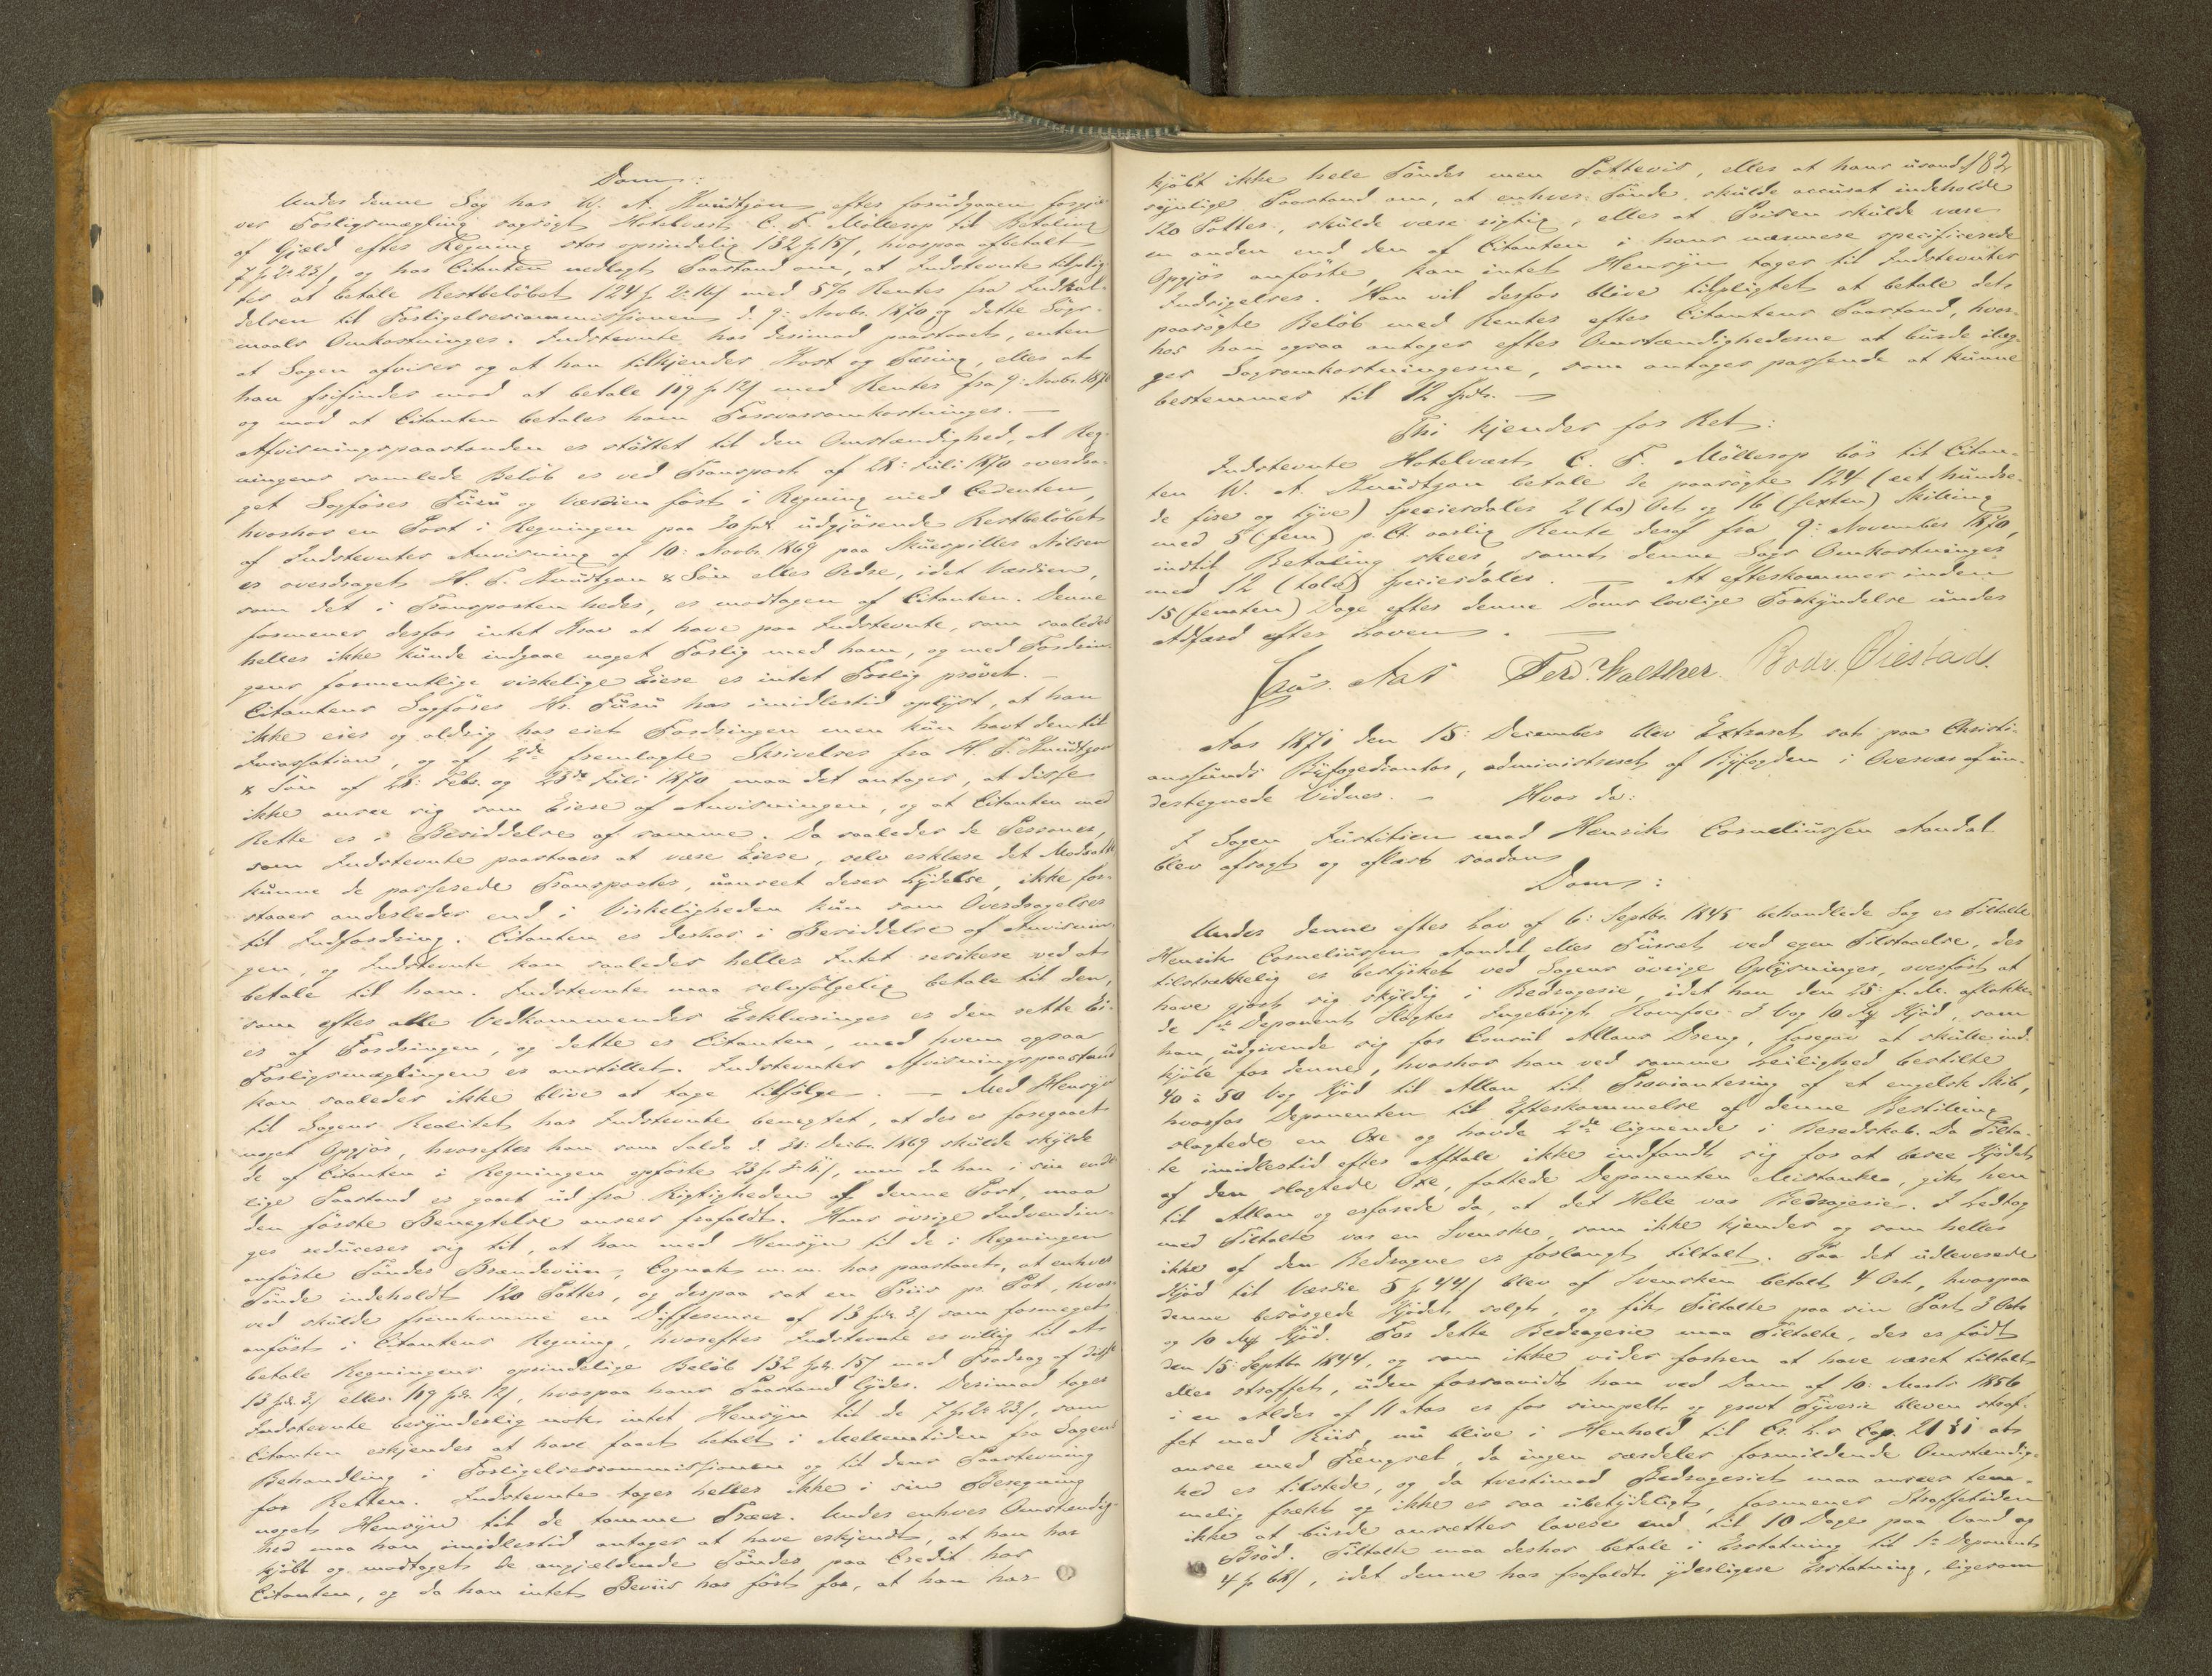 Dom:
Under denne Sag har W. A. Knudtzon efter forudgaaen forgje-
ves Forligsmægling sagsøgt Hotelvært C. F. Møllerop til Betaling
af Gjæld efter Regning stor oprindelig 132 p 15 s, hvorpaa afbetalt
7 p 2. 23 s, og har Citanten nedlagt Paastand om, at Indstevnte tilplig-
tes at betale Restbeløbet 124 p 2. 16 s med 5 % Renter fra Indkal-
delsen til Forligelsescommissionen d. 9: Novbr. 1870 og dette Søgs-
maals Omkostninger. Indstevnte har derimod paastaaet, enten
at Sagen afvises og at han tilkjendes Kost og Tæring, eller at
han frifindes mod at betale 119 p 12 s med Renter fra 9: Novbr. 1870
og mod at Citanten betaler ham Forsvarsomkostninger. —
Afvisningspaastanden er støttet til den Omstændighed, at Reg-
ningens samlede Beløb er ved Transport af 28: Juli 1870 overdra-
get Sagfører Furu og Værdien ført i Regning med Cedenten,
hvorhos en Post i Regningen paa 30 spd. udgjørende Restbeløbet
af Indstevntes Anvisning af 10: Novbr. 1869 paa Skuespiller Nilsen
er overdraget H. F. Knudtzon & Søn eller Ordre, idet Værdien,
som det i Transporten hedes, er modtagen af Citanten. Denne
formenes derfor intet Krav at have paa Indstevnte, som saaledes
heller ikke kunde indgaae noget Forlig med ham, og med Fordrin-
gens formentlige virkelige Eiere er intet Forlig prøvet. —
Citantens Sagfører Hr. Furu har imidlertid oplyst, at han
ikke eier og aldrig har eiet Fordringen men kun havt den til
Incassation, og af 2de fremlagte Skrivelser fra H. F. Knudtzon
& Søn af 28: Febr. og 23de Juli 1870 maa det antages, at disse
ikke ansee sig som Eiere af Anvisningen, og at Citanten med
Rette er i Besiddelse af samme. Da saaledes de Personer,
som Indstevnte paastaaes at være Eiere, selv erklære det Modsatte
kunne de passerede Transporter, uanseet deres Lydelse, ikke for-
staaes anderledes end i Virkeligheden kun som Overdragelser
til Indfordring. Citanten er derhos i Besiddelse af Anvisnin-
gen, og Indstevnte kan saaledes heller Intet risikere ved at
betale til ham. Indstevnte maa selvfølgelig betale til den,
som efter alle Vedkommendes Erklæringer er den rette Ei-
er af Fordringen, og dette er Citanten, med hvem ogsaa
Forligsmæglingen er anstillet. Indstevntes Afvisningspaastand
kan saaledes ikke blive at tage tilfølge. — Med Hensyn
til Sagens Realitet har Indstevnte benegtet, at der er foregaaet
noget Opgjør, hvorefter han som Saldo d. 31: Decbr. 1869 skulde skyl-
de af Citanten i Regningen opførte 23 p, men da han i sin endt-
lige Paastand er gaaet ud fra Rigtigheden af denne Post, maa
den første Benegtelse ansees frafaldt. Hans øvrige Indvendin-
ger reduceres sig til, at han med Hensyn til de i Regningen
anførte Tønder Brændeviin, Cognak m. m. har paastaaet, at enhver
Tønde indeholdt 120 Potter, og derpaa sat en Priis pr. Pot, hvor-
ved skulde fremkomme en Difference af 13 spd. 3 s som formeget
anført i Citantens Regning, hvorefter Indstevnte er villig til at
betale Regningens oprindelige Beløb 132 spd. 15 s med Fradrag af disse
13 spd. 3 s eller 119 spd. 12 s, hvorpaa hans Paastand lyder. Derimod tager
Indstevnte besynderlig nok intet Hensyn til de 7 p 2. 23 s, som
Citanten erkjender at have faaet betalt i Mellemtiden fra Sagens
Behandling i Forligelsescommissionen og til dens Paastevning
for Retten. Indstevnte tager heller ikke i sin Beregning
noget Hensyn til de tomme Træer. Under enhver Omstændig-
hed maa han imidlertid antages at have erkjendt, at han har
kjøbt og modtaget de angjældende Tønder paa Credit hos
Citanten, og da han intet Beviis har ført for, at han har
182
kjøbt ikke hele Tønder men Pottevis, eller at hans usand-
synlige Paastand om, at enhver Tønde skulde accurat indeholde
120 Potter, skulde være rigtig, eller at Prisen skulde være
en anden end den af Citanten i hans nærmere specificerede
Opgjør anførte, kan intet Hensyn tages til Indstevntes
Indsigelser. Han vil derfor blive tilpligtet at betale det
paasøgte Beløb med Renter efter Citantens Paastand, hvor-
hos han ogsaa antages efter Omstændighederne at burde ilæg-
ges Sagsomkostningerne, som antages passende at kunne
bestemmes til 12 Spd. —
Thi kjendes for Ret:
Indstevnte Hotelvært C. F. Møllerop bør til Citan-
ten W. A. Knudtzon betale de paasøgte 124 (eet hundre-
de fire og tyve) Speciesdaler 2 (to) Ort og 16 (sexten) Skilling
med 5 (fem) p. Ct. aarlig Rente deraf fra 9: November 1870,
indtil Betaling skeer, samt denne Sags Omkostninger
med 12 (tolv) Speciesdaler. — At efterkommes inden
15 (femten) Dage efter denne Doms lovlige Forkyndelse under
Adfærd efter Loven. —
Aas Ferd. Walther. Øiestad.
Aar 1871 den 15: December blev Extraret sat paa Christi-
anssunds Byfogedcontor, administreret af Byfogden i Overvær af un-
dertegnede Vidner. — Hvor da:
I Sagen Justitien mod Henrik Corneliussen Aandal
blev afsagt og oplæst saadan
Dom:
Under denne efter Lov af 6: Septbr. 1845 behandlede Sag er Tiltalte
Henrik Corneliussen Aandal eller Fursæt ved egen Tilstaaelse, der
tilstrækkelig er bestyrket ved Sagens øvrige Oplysninger, overført at
have gjort sig skyldig i Bedrageri, idet han den 25: f. M. aflokke-
de 1ste Deponent Slagter Ingebrigt Romfoe 3 Vog 10 Kjød, som
han, udgivende sig for Consul Allans Dreng, foregav at skulle ind-
kjøbe for denne, hvorhos han ved samme Leilighed bestilte
40 à 50 Vog Kjød til Allan til Proviantering af et engelsk Skib,
hvorfor Deponenten til Efterkommelse af denne Bestilling
slagtede en Oxe og havde 2de lignende i Beredskab. Da Tiltal-
te imidlertid efter Aftale ikke indfandt sig for at besee Kjødet
af den slagtede Oxe, fattede Deponenten Mistanke, gik hen
til Allan og erfarede da, at det Hele var Bedrageri. I Ledtog
med Tiltalte var en Svenske, som ikke kjendes og som heller
ikke af den Bedragne er forlangt tiltalt. For det udleverede
Kjød til Værdie 5 p 44 s blev af Svensken betalt 4 Ort, hvorpaa
denne besørgede Kjødet solgt, og fik Tiltalte paa sin Part 3 Ort
og 10 Kjød. For dette Bedrageri maa Tiltalte, der er født
den 15: Septbr. 1844, og som ikke vides forhen at have været tiltalt
eller straffet, uden forsaavidt han ved Dom af 10: Marts 1856
i en Alder af 11 Aar er for simpelt og grovt Tyveri bleven straf-
fet med Riis, nu blive i Henhold til Cr. L.s Cap. 21 § 1 at
ansee med Fængsel, da ingen særdeles formildende Omstændig-
hed er tilstede, og da tvertimod Bedrageriet maa ansees tem-
melig frækt og ikke er saa ubetydeligt, formenes Straffetiden
ikke at burde ansættes lavere end til 10 Dage paa Vand og
Brød. Tiltalte maa derhos betale i Erstatning til 1ste Deponent
4 p 68 s, idet denne har frafaldt yderligere Erstatning, ligesom